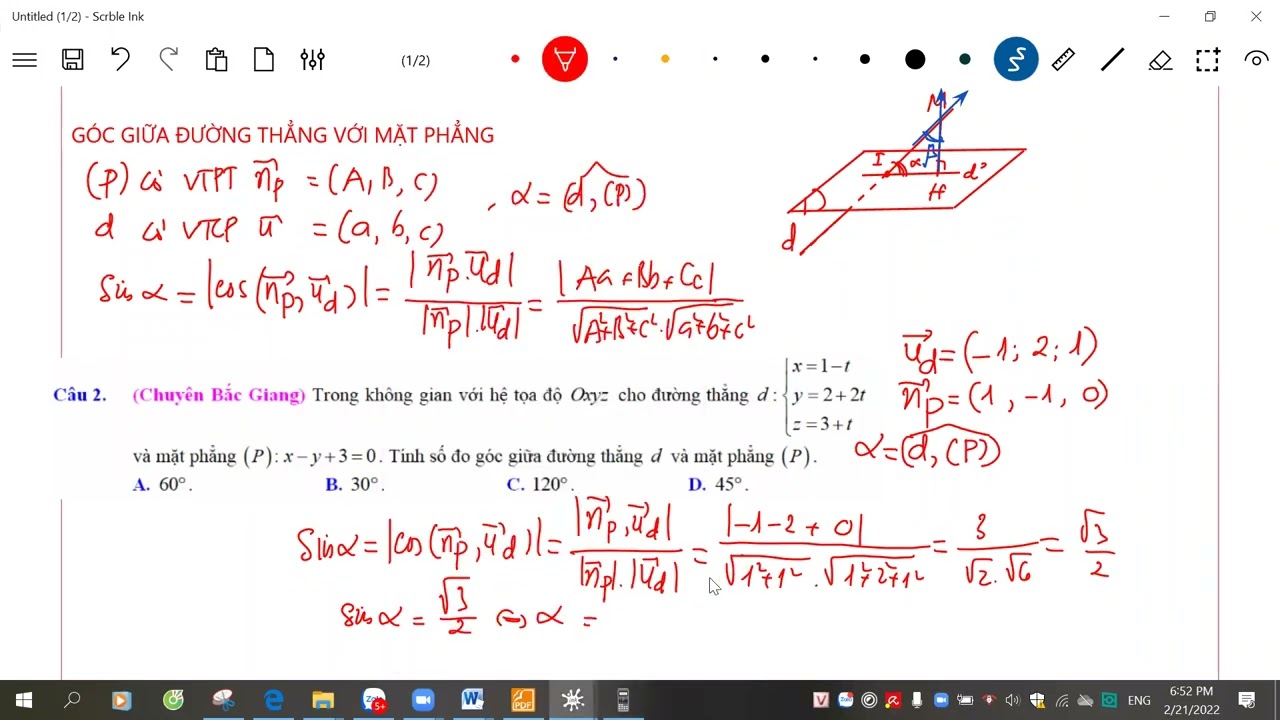 Untitled (1/2) - Scrble Ink
(1/2)
GÓC GIỮA ĐƯỜNG THẲNG VỚI MẶT PHẲNG
(P) có VTPT n⃗p = (A, B, C)
d có VTCP u⃗ = (a, b, c)
, α = (d, (P))
Sin α = |cos(n⃗p, u⃗d)| = |n⃗p.u⃗d| / |n⃗p|.|u⃗d| = |Aa+Bb+Cc| / √A²+B²+C².√a²+b²+c²
M
I α β d'
H
d
u⃗d = (-1; 2; 1)
n⃗p = (1, -1, 0)
α = (d, (P))
Câu 2. (Chuyên Bắc Giang) Trong không gian với hệ tọa độ Oxyz cho đường thẳng d: { x = 1 - t
y = 2 + 2t
z = 3 + t
và mặt phẳng (P): x - y + 3 = 0. Tính số đo góc giữa đường thẳng d và mặt phẳng (P).
A. 60°. B. 30°. C. 120°. D. 45°.
Sin α = |cos(n⃗p, u⃗d)| = |n⃗p, u⃗d| / |n⃗p|.|u⃗d| = |-1-2+0| / √1²+1².√1²+2²+1² = 3 / √2.√6 = √3 / 2
Sin α = √3 / 2 ⇔ α =
ENG
6:52 PM
2/21/2022